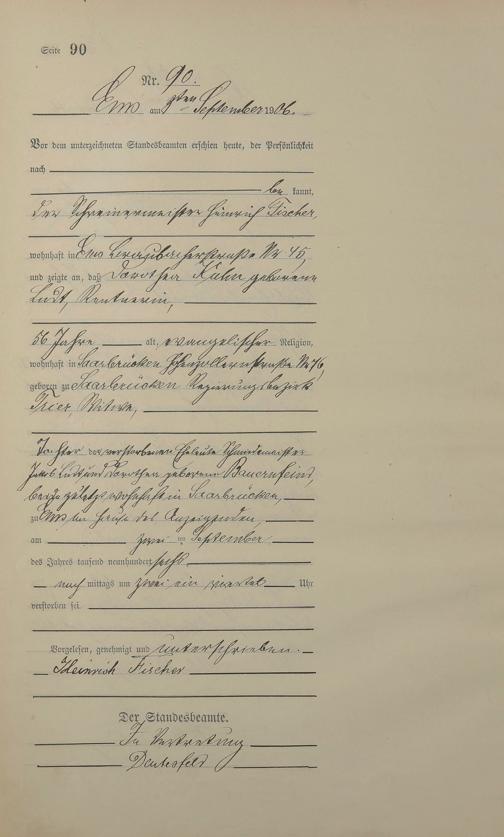 Seite 90
Nr. 90.
Ems am ten September 1906.
Vor dem unterzeichneten Standesbeamten erschien heute, der Persönlichkeit
nach
be kannt,
der Schreinermeister Heinrich Fischer,
wohnhaft in Ems Braubacherstraße Nr 45,
und zeigte an, daß Dorothea Kuhn geborene
Ludt, Rentnerin,
56 Jahre alt, evangelischer Religion,
wohnhaft in Saarbrücken Hohenzollernstraße Nr
geboren zu Saarbrücken Regierungsbezirk
Trier, Witwe,
Tochter der verstorbenen Eheleute Schmiedemeister
Jakob Ludt und Dorothea geborene Bauernfeind,
beide zuletzt wohnhaft in Saarbrücken,
zu Ems im Hause des Anzeigenden,
am zwei ten September
des Jahres tausend neunhundert sechs
nach mittags um zwei ein viertel Uhr
verstorben sei.
Vorgelesen, genehmigt und unterschrieben.
Heinrich Fischer
Der Standesbeamte.
In Vertretung